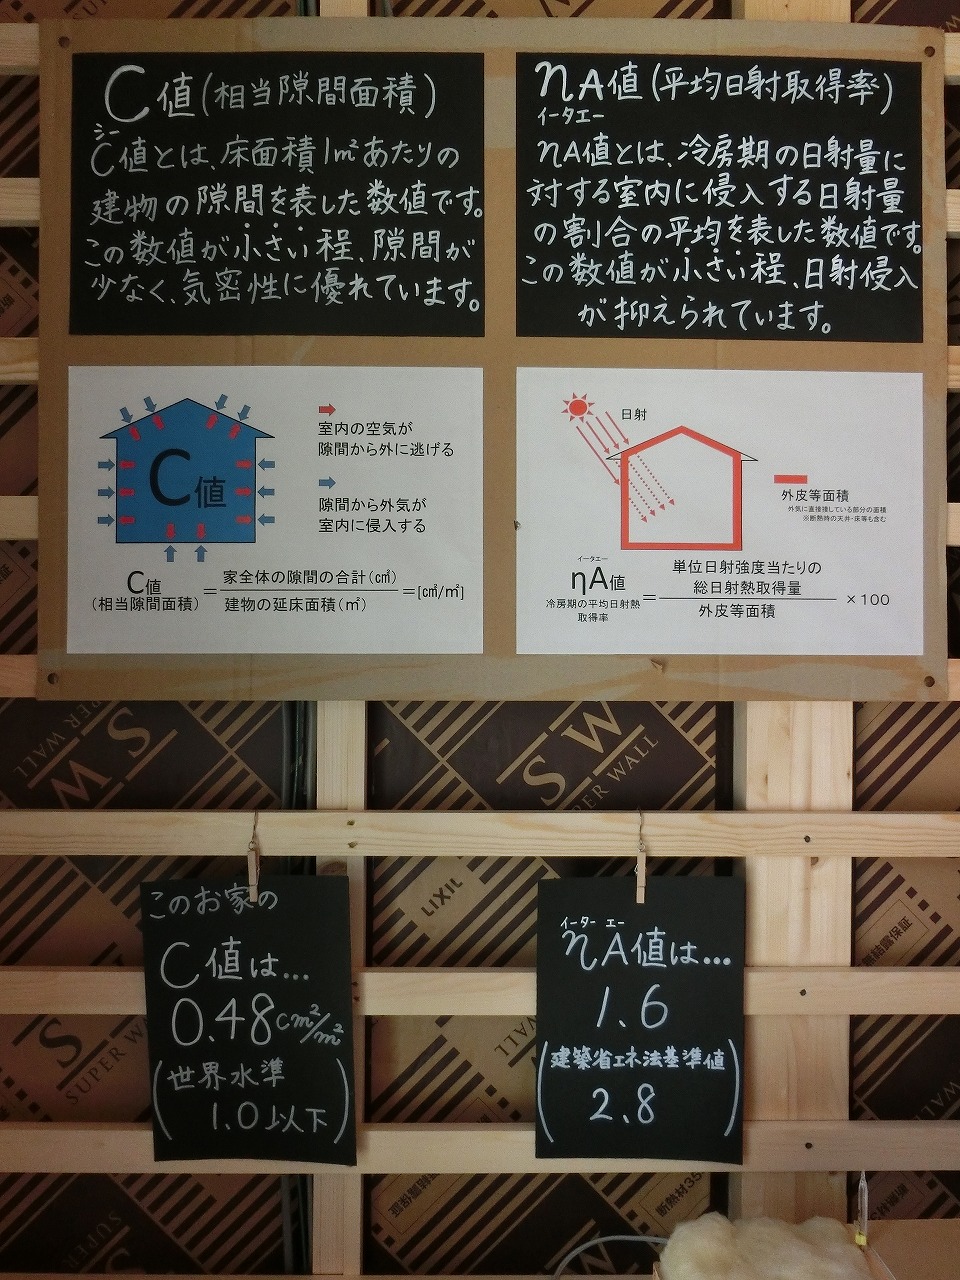 C値(相当隙間面積)
シー
C値とは、床面積1m²あたりの
建物の隙間を表した数値です。
この数値が小さい程、隙間が
少なく、気密性に優れています。
ηA値(平均日射取得率)
イータエー
ηA値とは、冷房期の日射量に
対する室内に侵入する日射量
の割合の平均を表した数値です。
この数値が小さい程、日射侵入
が抑えられています。
C値
室内の空気が
隙間から外に逃げる
隙間から外気が
室内に侵入する
C値
(相当隙間面積)
=
家全体の隙間の合計(c㎡)
建物の延床面積(㎡)
=[c㎡/㎡]
日射
外皮等面積
外気に直接接している部分の面積
※断熱時の天井・床等も含む
イータエー
ηA値
冷房期の平均日射熱
取得率
=
単位日射強度当たりの
総日射熱取得量
外皮等面積
×100
SUPER WALL
SW
SW
SUPER WALL
LIXIL
無結露保証
このお家の
C値は...
0.48cm²/m²
(世界水準
1.0以下)
イータ エー
ηA値は...
1.6
(建築省エネ法基準値)
2.8
SUPER WALL